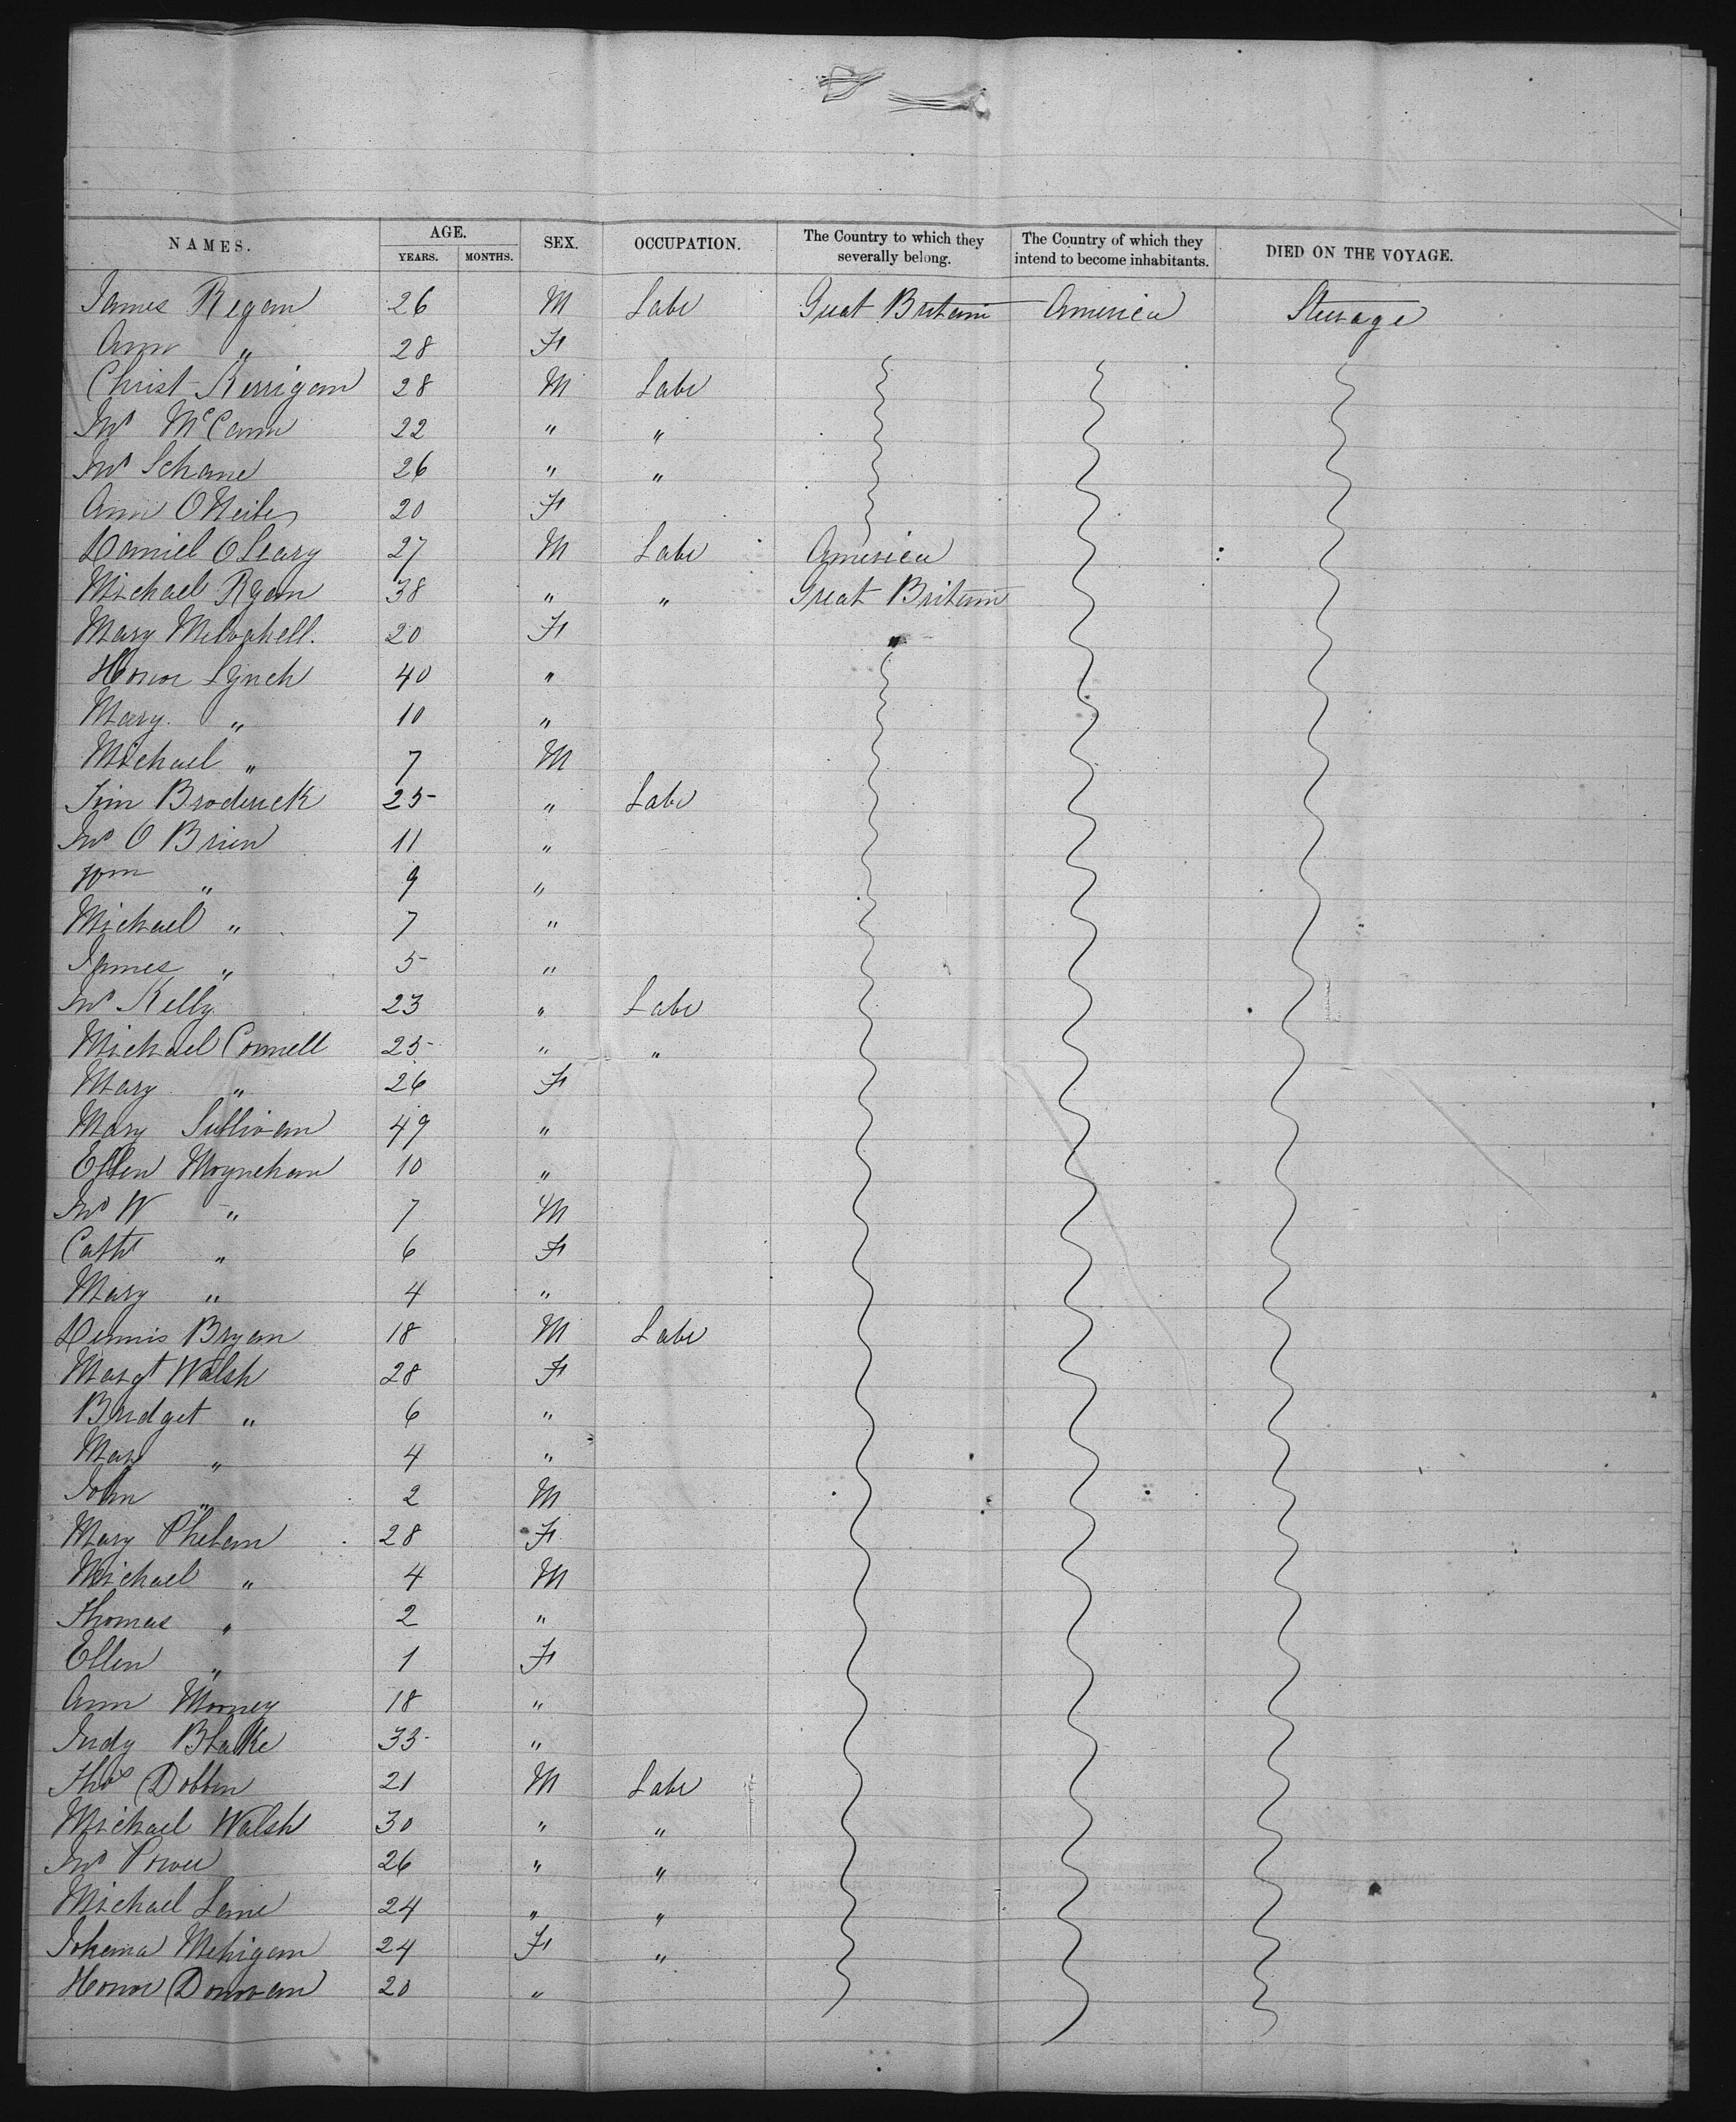 NAMES. AGE. SEX. OCCUPATION. The Country to which they severally belong. The Country of which they intend to become inhabitants. DIED ON THE VOYAGE.
YEARS. MONTHS.
James Regan 26 M Labr Great Britain America Steerage
Ann " 28 F
Christ Kerrigan 28 M Labr
Jno McCann 22 " "
Jno 26 " "
Ann O'Neile 20 F
Daniel O Leary 27 M Labr America
Michael Ryan 38 " " Great Britain
Mary 20 F "
Honor Lynch 40 "
Mary " 10 "
Michael " 7 M
Tim Broderick 25 " Labr
Jno O Brien 11 "
Wm " 9 "
Michael " 7 "
James " 5 "
Jno Kelly 23 " Labr
Michael Connell 25 " "
Mary " 26 F
Mary Sullivan 49 "
Ellen Moynehan 10 "
Jno W " 7 M
Cath " 6 F
Mary " 4 "
Dennis Bryan 18 M Labr
Margt Walsh 28 F
Bridget " 6 "
Mary " 4 "
John " 2 M
Mary Phelan 28 F
Michael " 4 M
Thomas " 2 "
Ellen " 1 F
Ann Mooney 18 "
Judy Blake 33 "
Thos Dobbin 21 M Labr
Michael Walsh 30 " "
Jno Power 26 " "
Michael Lane 24 " "
Johanna Mehigan 24 F "
Honor Donovan 20 "